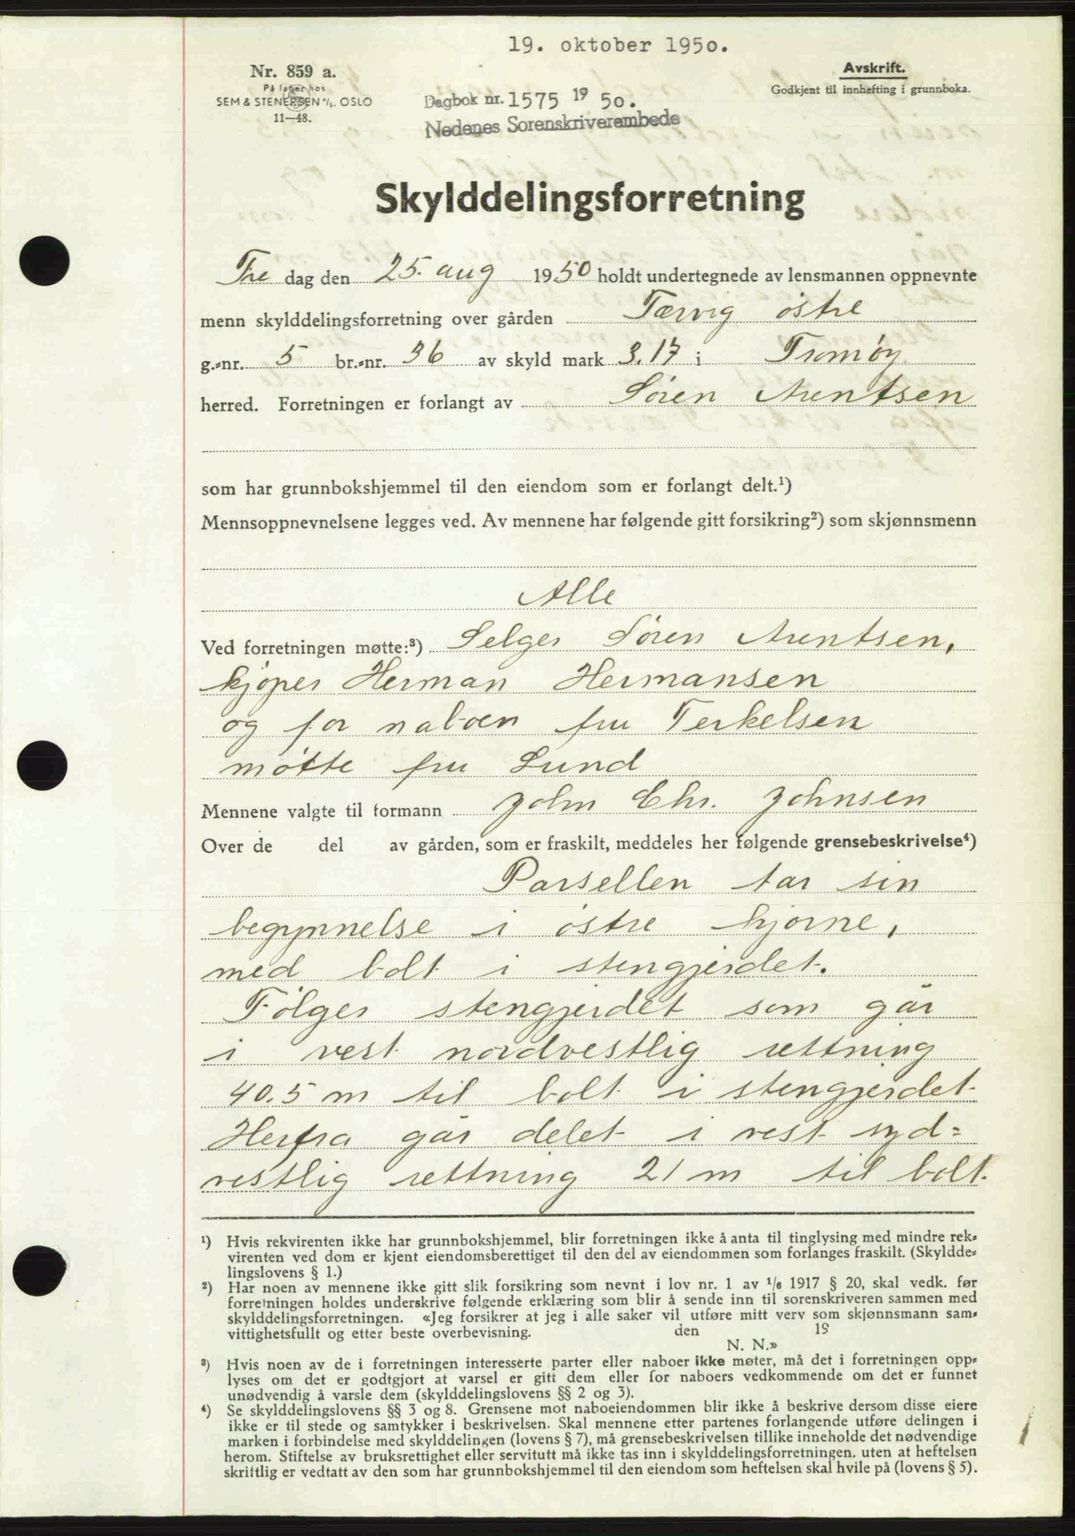 19. oktober 1950.
Nr. 859 a.
På lager hos
SEM & STENERSEN A/S. OSLO
11—48.
Dagbok nr. 1575 19 50.
Nedenes Sorenskriverembede
Avskrift.
Godkjent til innhefting i grunnboka.
Skylddelingsforretning
Fre dag den 25. aug 1950 holdt undertegnede av lensmannen oppnevnte
menn skylddelingsforretning over gården Tærvig østre
g.-nr. 5 br.-nr. 36 av skyld mark 3.17 i Tromøy
herred. Forretningen er forlangt av Søren Arentsen
som har grunnbokshjemmel til den eiendom som er forlangt delt.¹)
Mennsoppnevnelsene legges ved. Av mennene har følgende gitt forsikring²) som skjønnsmenn
Alle
Ved forretningen møtte:³) Selger Søren Arentsen,
kjøper Herman Hermansen
og for naboen fru Terkelsen
møtte fru Lund
Mennene valgte til formann John Chr. Johnsen
Over de del av gården, som er fraskilt, meddeles her følgende grensebeskrivelse⁴)
Parsellen tar sin
begynnelse i østre hjørne,
med bolt i stengjerdet.
Følger stengjerdet som går
i vest nordvestlig rettning
40.5 m til bolt i stengjerdet
Herfra går delet i vest syd-
vestlig rettning 21 m til bolt.
¹) Hvis rekvirenten ikke har grunnbokshjemmel, blir forretningen ikke å anta til tinglysing med mindre rek-
virenten ved dom er kjent eiendomsberettiget til den del av eiendommen som forlanges fraskilt. (Skyldde-
lingslovens § 1.)
²) Har noen av mennene ikke gitt slik forsikring som nevnt i lov nr. 1 av 1/6 1917 § 20, skal vedk. før
forretningen holdes underskrive følgende erklæring som blir å sende inn til sorenskriveren sammen med
skylddelingsforretningen. «Jeg forsikrer at jeg i alle saker vil utføre mitt verv som skjønnsmann sam-
vittighetsfullt og etter beste overbevisning. den 19
N. N.»
³) Hvis noen av de i forretningen interesserte parter eller naboer ikke møter, må det i forretningen opp-
lyses om det er godtgjort at varsel er gitt dem eller for naboers vedkommende om det er funnet
unødvendig å varsle dem (skylddelingslovens §§ 2 og 3).
⁴) Se skylddelingslovens §§ 3 og 8. Grensene mot naboeiendommen blir ikke å beskrive dersom disse eiere
ikke er til stede og samtykker i beskrivelsen. Skal mennene etter partenes forlangende utføre delingen i
marken i forbindelse med skylddelingen (lovens § 7), må grensebeskrivelsen tillike inneholde det nødvendige
herom. Stiftelse av bruksrettighet eller servitutt må ikke tas inn i skylddelingsforretningen, uten at heftelsen
skriftlig er vedtatt av den som har grunnbokshjemmel til den eiendom som heftelsen skal hvile på (lovens § 5).